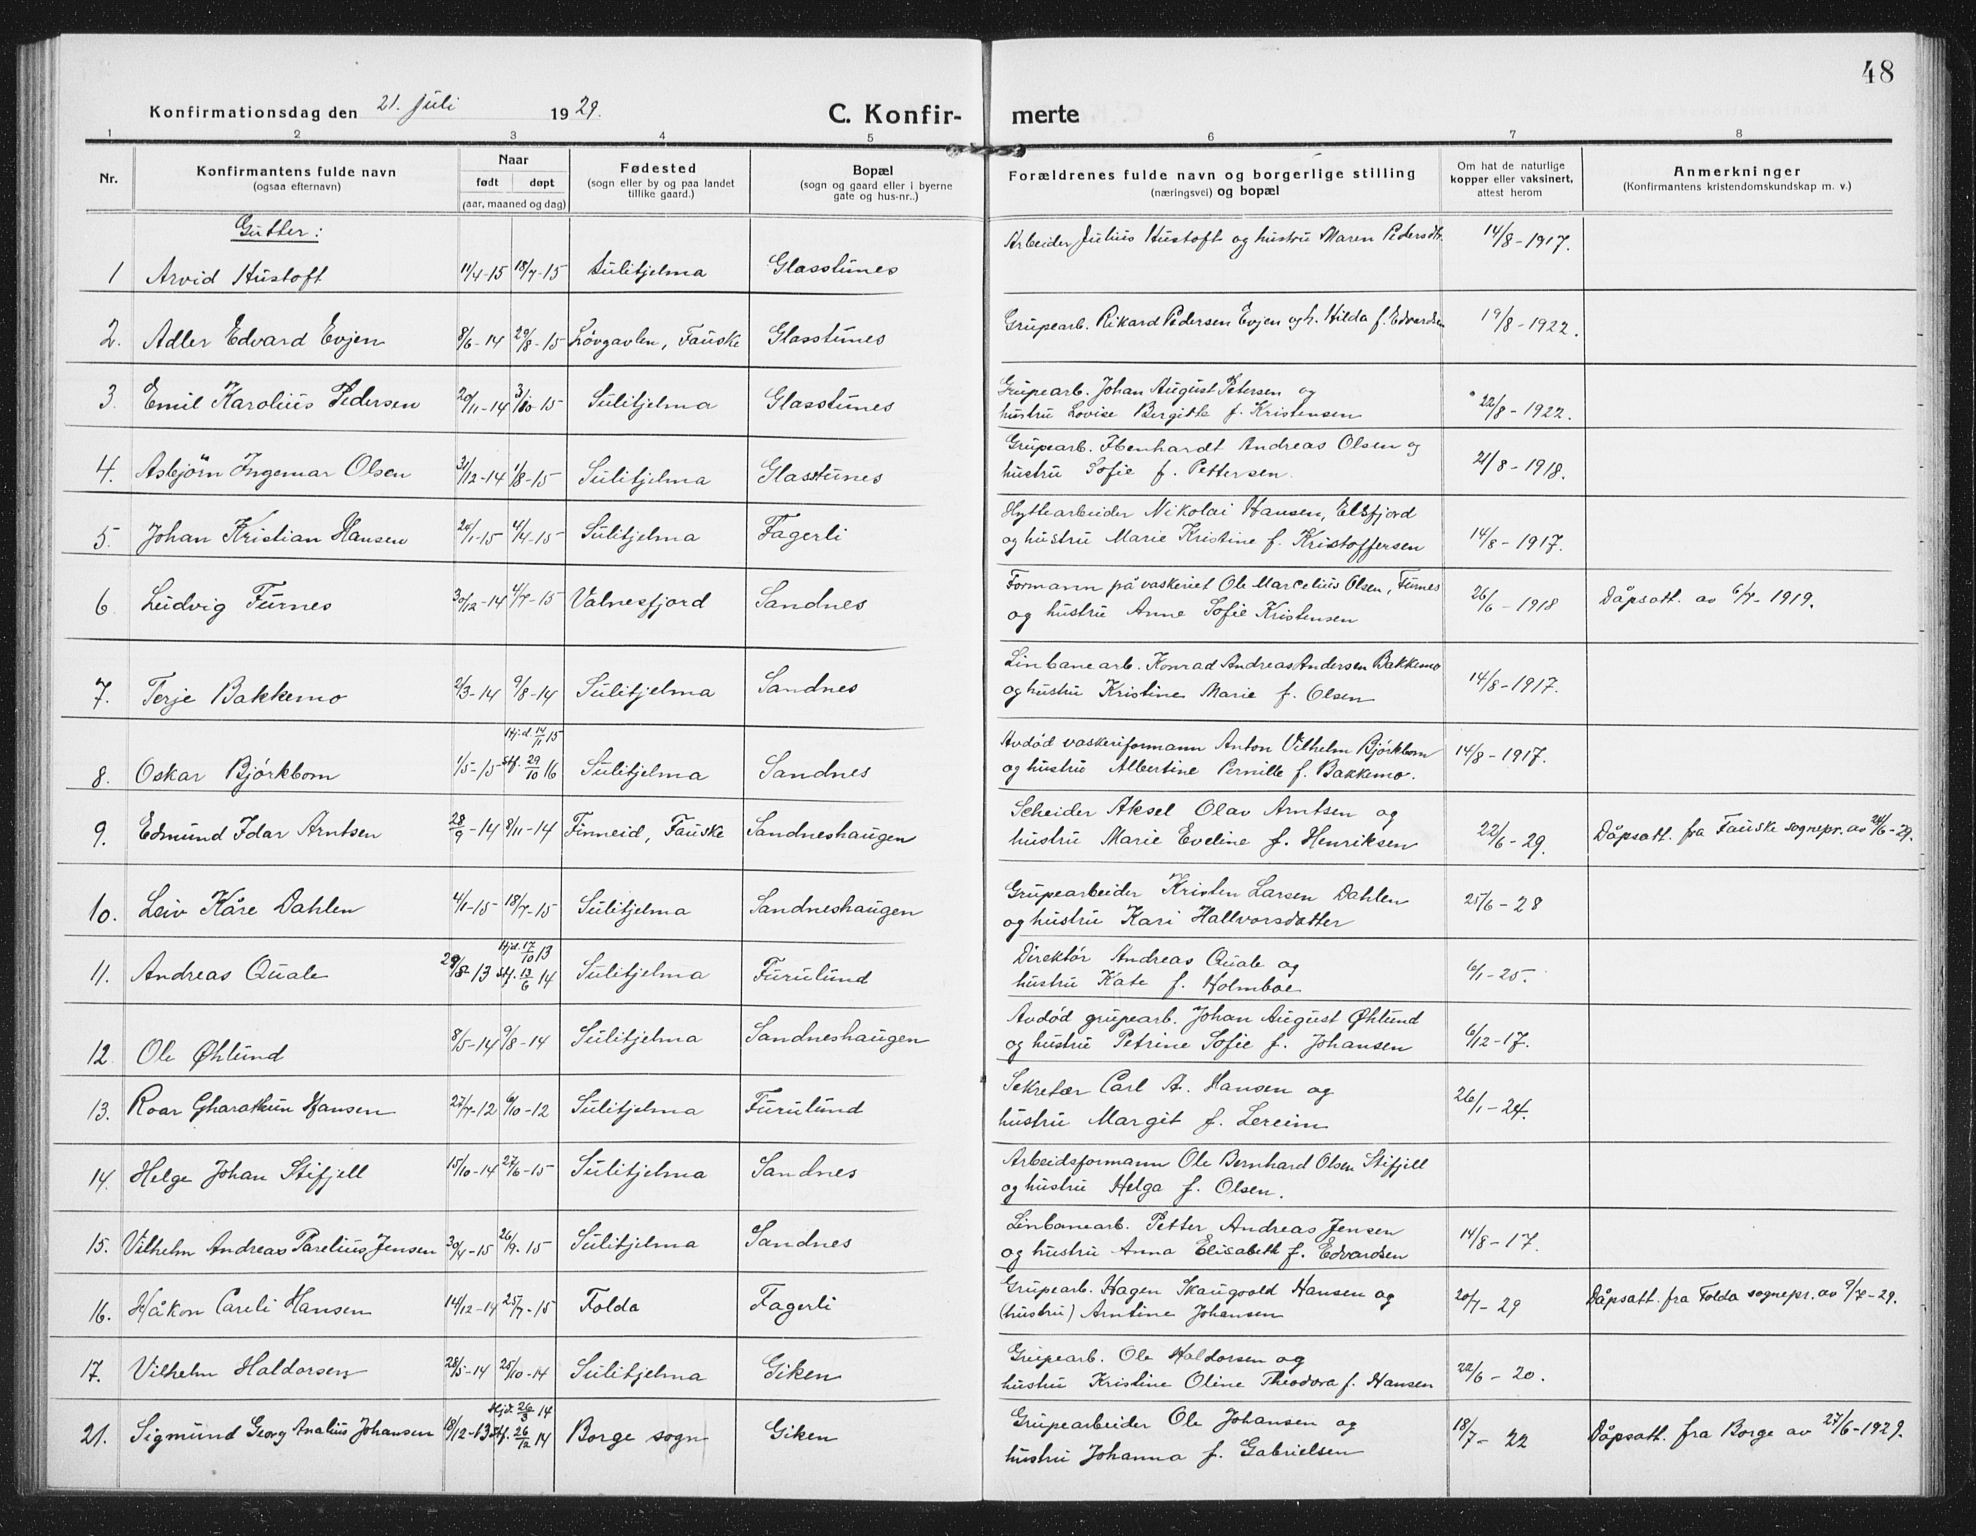 48
Konfirmationsdag den 21. juli 1929.
C. Konfirmerte
1 2 3 4 5 6 7 8
Nr. | Konfirmantens fulde navn (ogsaa efternavn) | Naar født døpt (aar, maaned og dag) | Fødested (sogn eller by og paa landet tillike gaard.) | Bopæl (sogn og gaard eller i byerne gate og hus-nr..) | Forældrenes fulde navn og borgerlige stilling (næringsvei) og bopæl | Om hat de naturlige kopper eller vaksinert, attest herom | Anmerkninger (Konfirmantens kristendomskundskap m. v.)
Gutter:
1 Arvid Hustoft 11/4-15 18/7-15 Sulitjelma Glasstunes Arbeider Julius Hustoft og hustru Maren Pedersdtr. 14/8-1917.
2. Adler Edvard Evjen 8/6-14 29/8-15 Løvgavlen, Fauske Glasstunes Grupearb. Rikard Pedersen Evjen og h. Hilda f. Edvardsen 19/8-1922.
3. Emil Karolius Pedersen 20/11-14 3/10-15 Sulitjelma Glasstunes Grupearb. Johan August Petersen og
hustru Lovise Bergitte f. Kristensen 22/8-1922.
4. Asbjørn Ingemar Olsen 31/12-14 1/8-15 Sulitjelma Glasstunes Grupearb. Ibenhardt Andreas Olsen og
hustru Sofie f. Pettersen. 21/8-1918.
5. Johan Kristian Hansen 4/4-15 Sulitjelma Fagerli Hyttearbeider Nikolai Hansen, Elsfjord
og hustru Marie Kristine f. Kristoffersen 14/8-1917.
6. Ludvig Furnes 30/12-14 4/7-15 Valnesfjord Sandnes Formann på vaskeriet Ole Marcelius Olsen, Furnes
og hustru Anne Sofie Kristensen 26/6-1918 Dåpsatt. av 6/7-1919.
7. Terje Bakkemo 2/3-14 9/8-14 Sulitjelma Sandnes Linbanearb. Konrad Andreas Andersen Bakkemo
og hustru Kristine Marie f. Olsen 14/8-1917.
8. Oskar Bjørkbom 1/5-15 Hj.d. 14/11 15 Stf. 29/10 16 Sulitjelma Sandnes Avdød vaskeriformann Anton Vilhelm Bjørkbom
og hustru Albertine Pernille f. Bakkemo. 14/8-1917.
9. Edmund Idar Arntsen 28/9-14 8/11-14 Finneid, Fauske Sandneshaugen Scheider Aksel Olav Arntsen og
hustru Marie Eveline f. Henriksen 22/6-29. Dåpsatt. fra Fauske sognepr. av 24/6-29.
10. Leiv Kåre Dahlen 4/1-15 18/7-15 Sulitjelma Sandneshaugen Grupearbeider Kristen Larsen Dahlen
og hustru Kari Hallvorsdatter 25/6-28
11. Andreas Quale 29/8-13 Hj.d. 17/10 13 Stf. 13/6 14 Sulitjelma Furulund Direktør Andreas Quale og
hustru Kate f. Holmboe 6/1-25.
12. Ole Øhlund 8/5-14 9/8-14 Sulitjelma Sandneshaugen Avdød grupearb. Johan August Øhlund
og hustru Petrine Sofie f. Johansen 6/12-17.
13. Roar Hansen 27/7-12 6/10-12 Sulitjelma Furulund Sekretær Carl A. Hansen og
hustru Margit f. Lereim 26/1-24.
14. Helge Johan Stifjell 15/10-14 27/6-15 Sulitjelma Sandnes Arbeidsformann Ole Bernhard Olsen Stifjell
og hustru Helga f. Olsen.
15. Vilhelm Andreas Parelius Jensen 30/4-15 26/9-15 Sulitjelma Sandnes Linbanearb. Petter Andreas Jensen
og hustru Anna Elisabeth f. Edvardsen 14/8-17.
16. Håkon Careli Hansen 14/12-14 25/7-15 Folda Fagerli Grupearb. Hagen Skaugvold Hansen og
(hustru) Arntine Johansen 20/7-29 Dåpsatt. fra Folda sognepr. av 9/7-29.
17. Vilhelm Haldorsen 28/5-14 25/10-14 Sulitjelma Giken Grupearb. Ole Haldorsen og
hustru Kristine Oline Theodora f. Hansen 22/6-20.
21. Sigmund Georg Analius Johansen 18/12-13 Hjd. 26/3 14 Stf. 26/12 14 Borge sogn Giken Grupearbeider Ole Johansen og
hustru Johanna f. Gabrielsen 18/7-22 Dåpsatt. fra Borge av 27/6-1929.